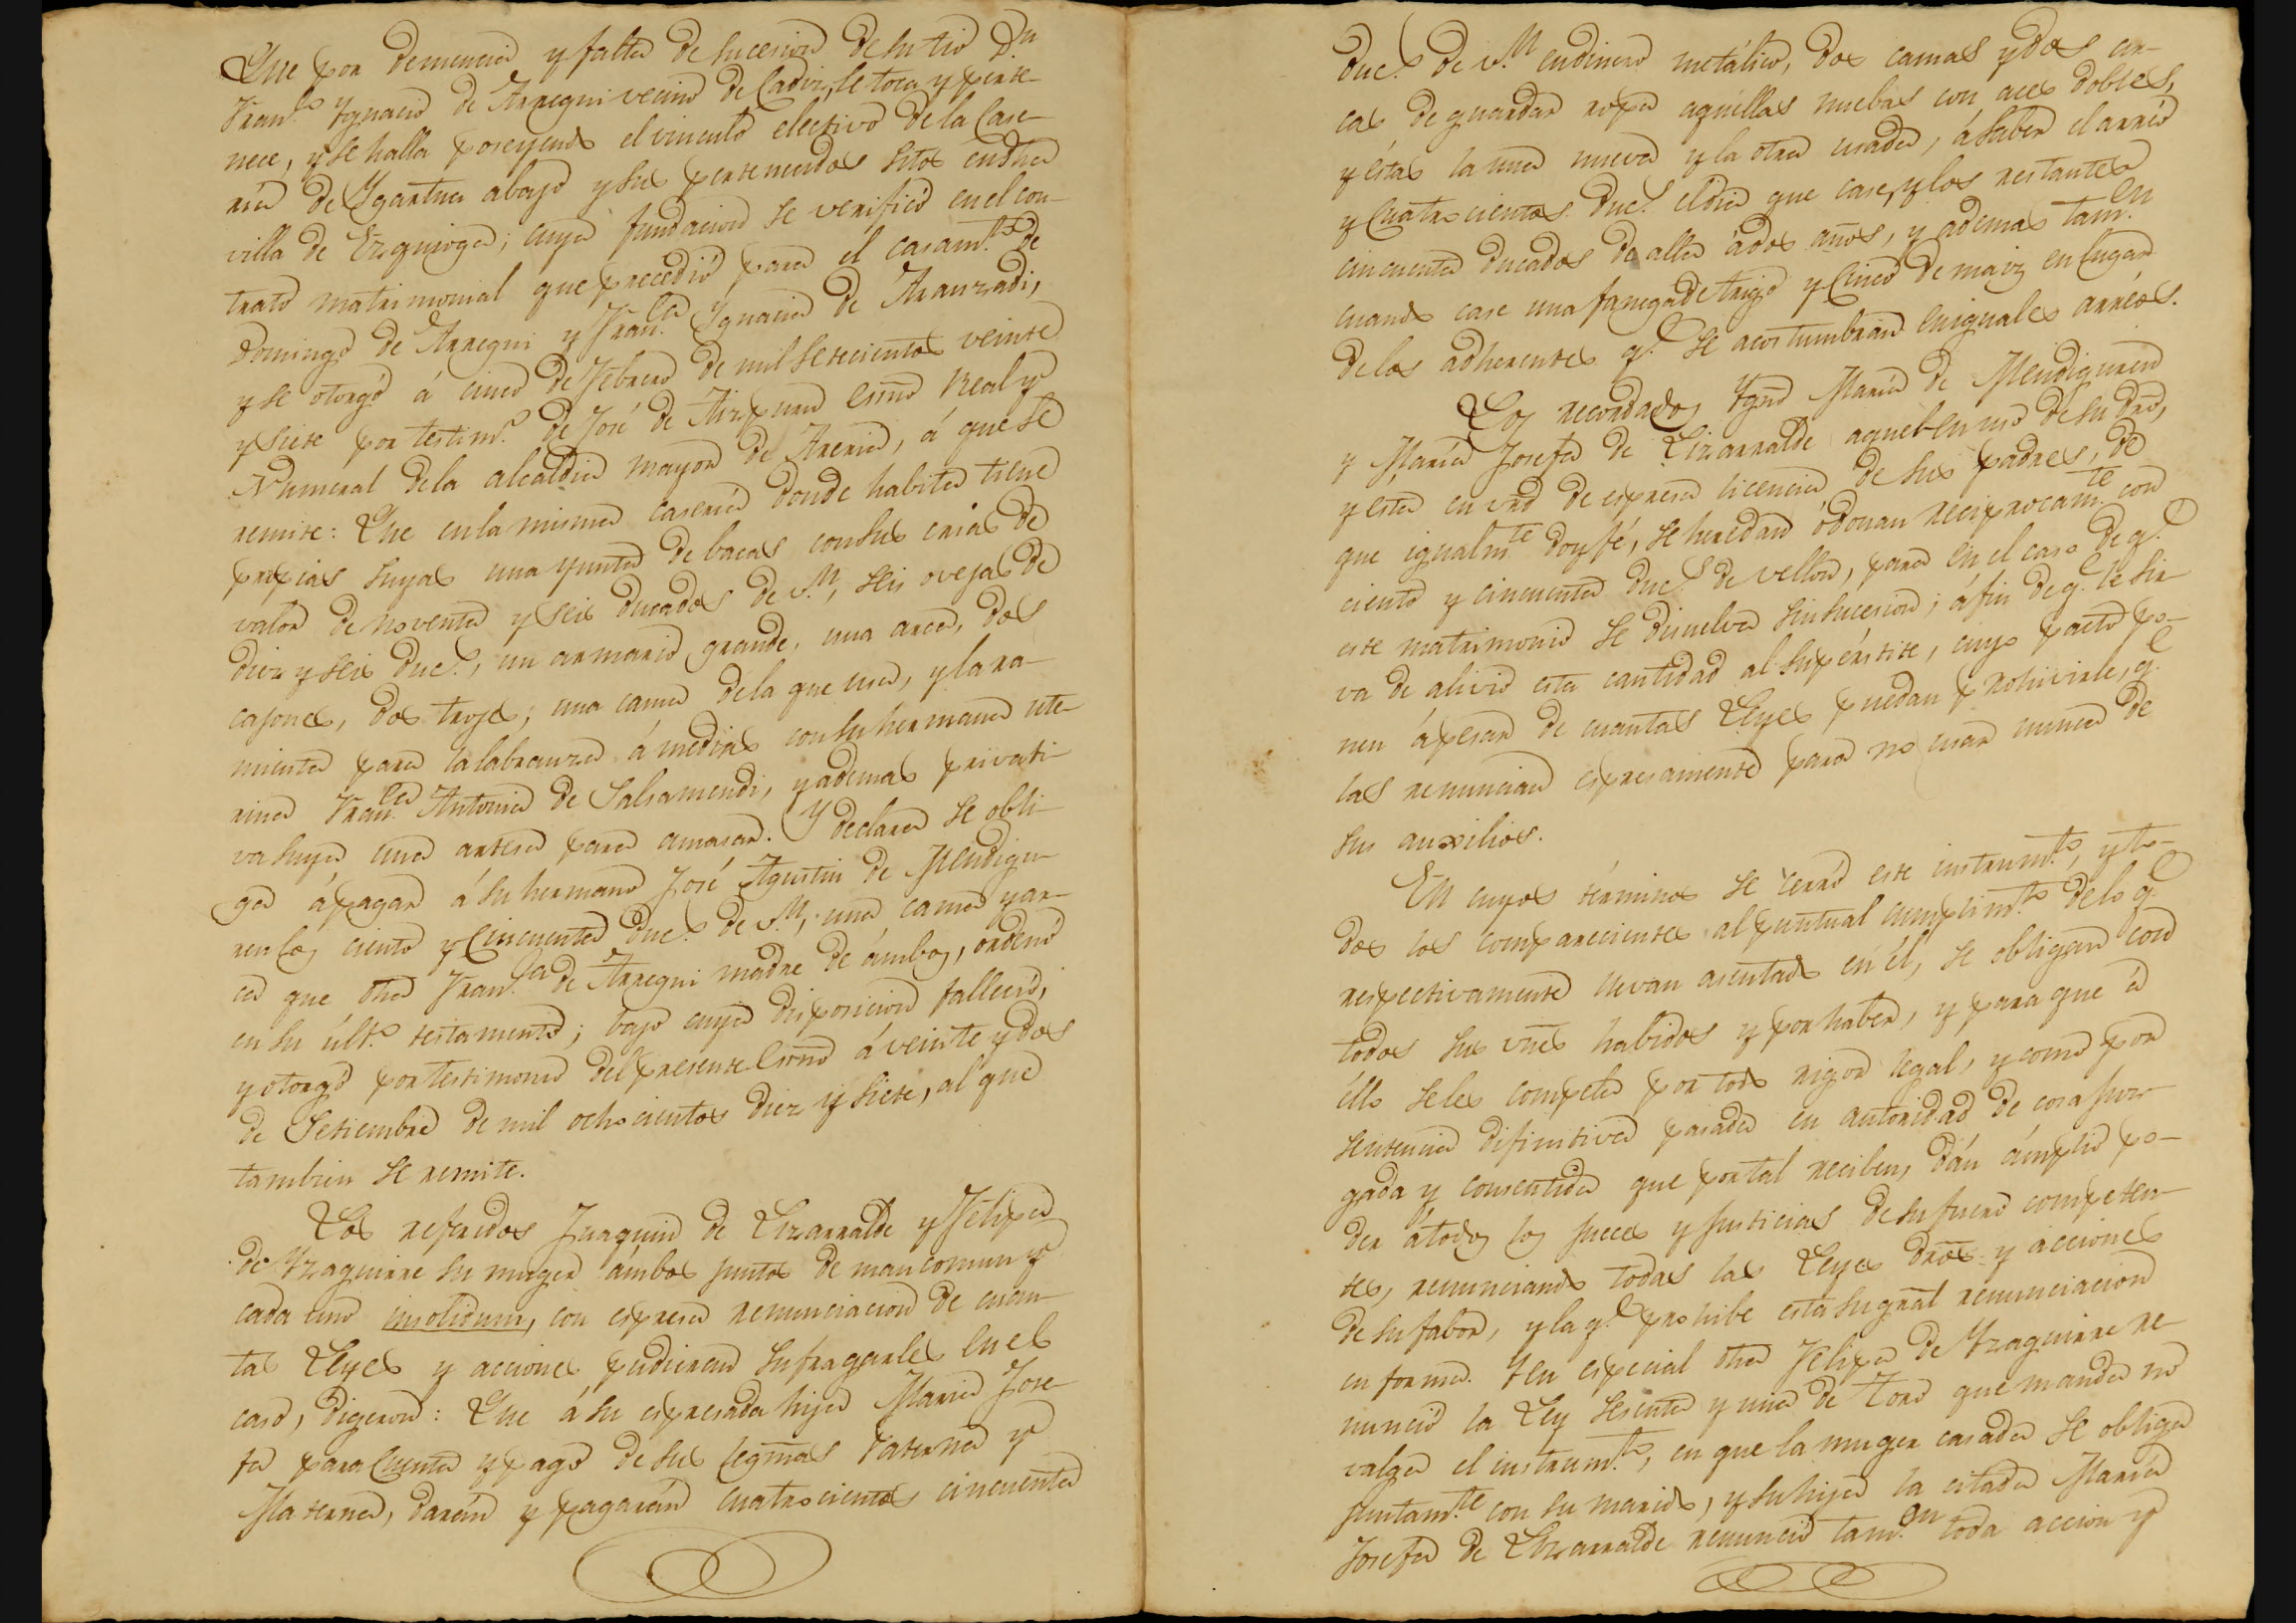 Que por demencia y falta de sucesion de su tio D.n
Fran.co Ygnacio de Arregui vecino de Cadiz, le toca y perte-
nece, y se halla poseyendo el vinculo electivo de la Case-
ria de Ygartua abajo y sus pertenecidos sitos en dha
villa de Ezquioga; cuya fundacion se verificó en el con-
trato matrimonial que precedió para el casam.to de
Domingo de Arregui y Fran.ca Ygnacia de Aranzadi,
y se otorgó á cinco de Febrero de mil setecientos veinte
y siete por testim.o de José de Aizpuru Essno Real y
Numeral de la alcaldia mayor de Areria, á que se
remite: Que en la misma caseria donde habita tiene
propias suyas una yunta de bacas con sus crias de
valor de noventa y seis ducados de v.n, seis ovejas de
diez y seis duc.s, un armario grande, una arca, dos
cajones, dos trojes; una cama de la que usa, y la ra-
mienta para la labranza á medias con su hermana ute-
rina Fran.ca Antonia de Salsamendi, y ademas privati-
va suya una artesa para amasar. Y declara se obli-
ga á pagar á su hermano José Agustin de Mendigu-
ren los ciento y cincuenta duc.s de v.n, una cama y ar-
ca que dha Fran.ca de Arregui madre de ámbos, ordenó
en su últ.o testamento; bajo cuya disposicion falleció,
y otorgó por testimonio del presente Essno á veinte y dos
de Setiembre de mil ochocientos diez y siete, al que
tambien se remite.
Los referidos Juaquin de Lizarralde y Felipa
de Yzaguirre su muger ámbos juntos de mancomun y
cada uno insolidum, con espresa renunciacion de cuan-
tas Leyes y acciones pudieran sufragarles en el
caso, digeron: Que á su espresada hija Maria Jose-
fa para cuenta y pago de sus legmas Paterna y
Materna, darán y pagarán cuatrocientos cincuenta
duc.s de v.n en dinero metálico, dos camas y dos ar-
cas de guardar ropa aquellas nuebas con aces dobles,
y éstas la una nueva y la otra usada, á saber el arreo
y cuatrocientos duc.s el dia que case, y los restantes
cincuenta ducados de alla á dos años, y ademas tam.en
cuando case una fanega de trigo y cinco de maiz en lugar
de los adherentes q.e se acostumbran en iguales arreos.
Los recordados Ygn.o Maria de Mendiguren
y Maria Josefa de Lizarralde aquel en uso de su dro,
y ésta en vrd de espresa licencia de sus padres, de
que igualm.te doy fé, se heredan ó donan reciprocam.te con
ciento y cincuenta duc.s de vellon, para en el caso de q.e
este matrimonio se disuelva sin sucesion; á fin de q.e le sir-
va de alivio esta cantidad al supérstite, cuyo pacto po-
nen á pesar de cuantas Leyes puedan prohivirle, q.e
las renuncian espresamente para no usar nunca de
sus auxilios.
En cuyos términos se cerró este instrum.to, y to-
dos los comparecientes al puntual cumplim.to de lo q.e
respectivamente llevan asentado en él, se obligan con
todos sus vnes habidos y por haber, y para que á
éllo se les compela por todo rigor legal, y como por
sentencia difinitiva pasada en autoridad de cosa juz-
gada y consentida que por tal reciben, dán ámplio po-
der á todos los jueces y justicias de su fuero competen-
tes, renunciando todas las Leyes dros y acciones
de su fabor, y la q.e prohibe esta su gral renunciacion
en forma. Y en especial dha Felipa de Yzaguirre re-
nunció la Ley sesenta y una de Toro que manda no
valga el instrum.to, en que la muger casada se obliga
juntam.te con su marido, y su hija la citada Maria
Josefa de Lizarralde renunció tam.en toda accion y